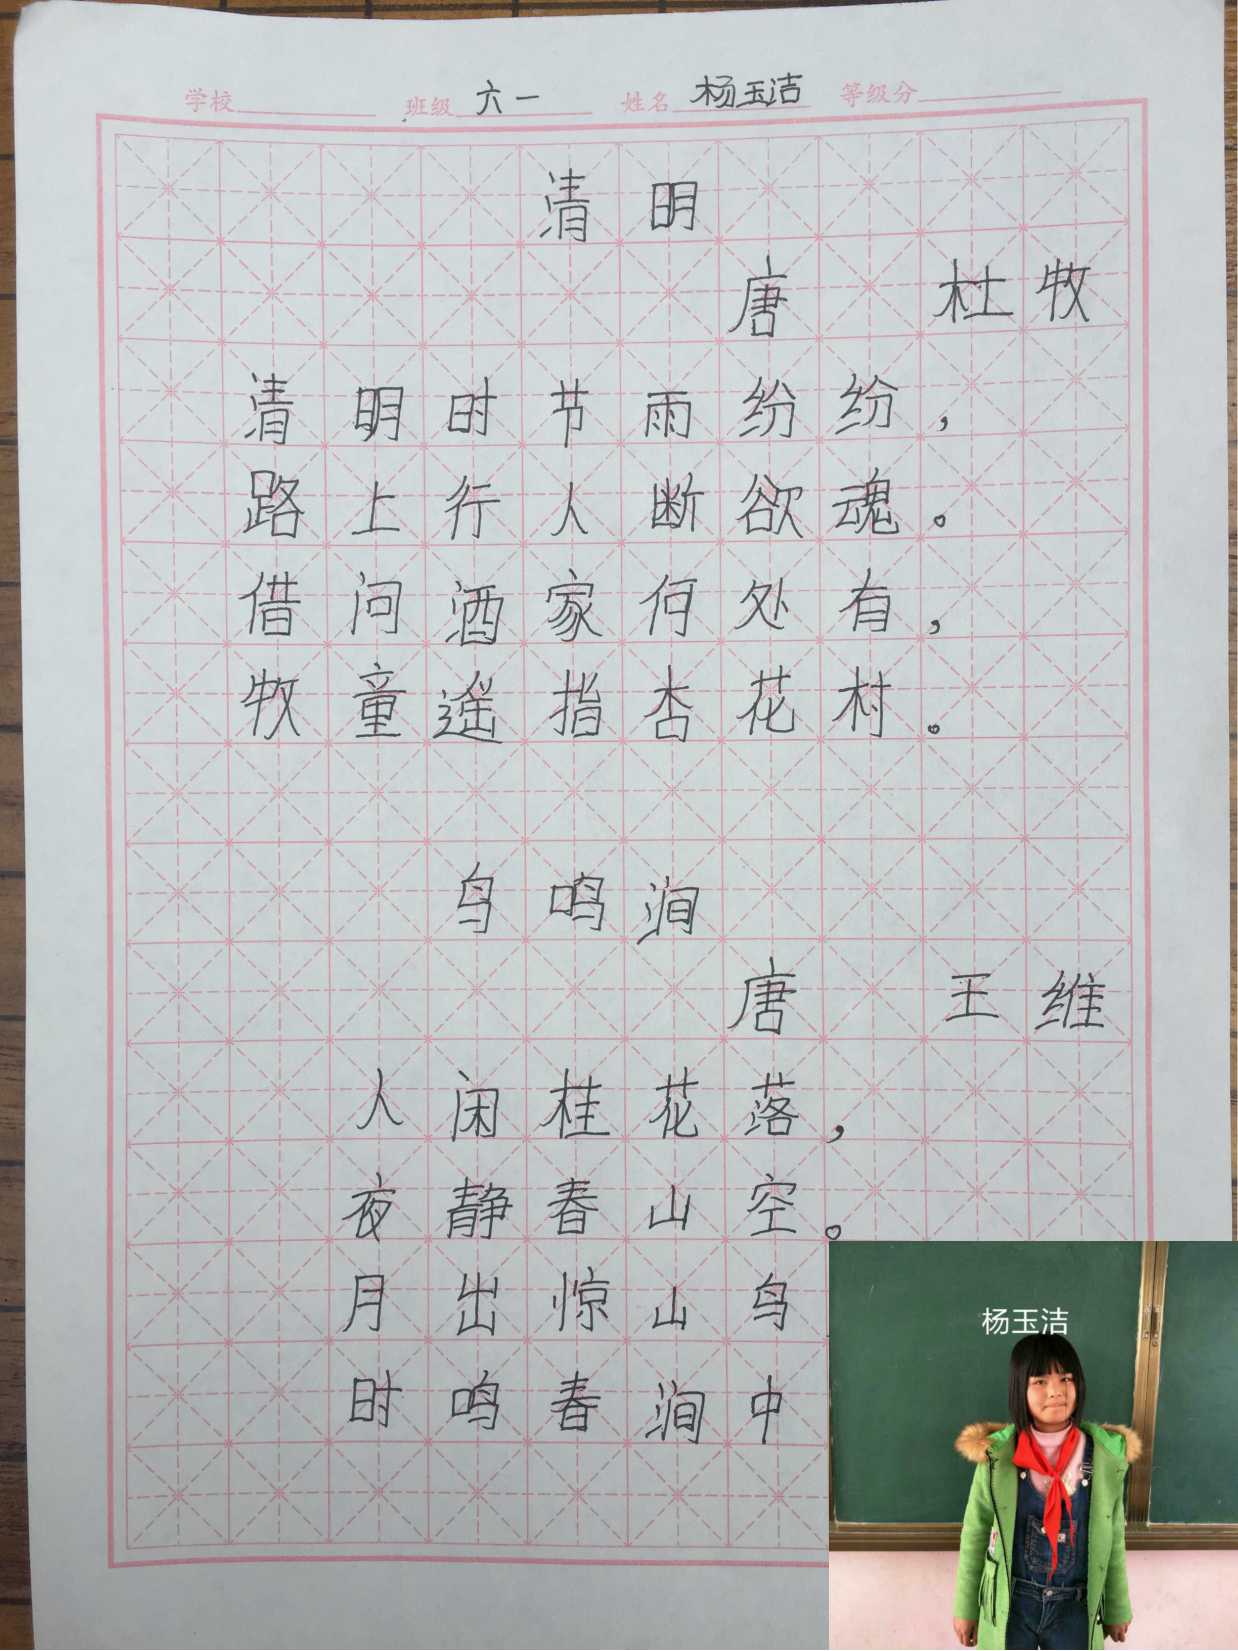 学校 班级 六一 姓名 杨玉洁 等级分
清明
唐 杜牧
清明时节雨纷纷，
路上行人断欲魂。
借问酒家何处有，
牧童遥指杏花村。
鸟鸣涧
唐 王维
人闲桂花落，
夜静春山空。
月出惊山鸟
时鸣春涧中
杨玉洁